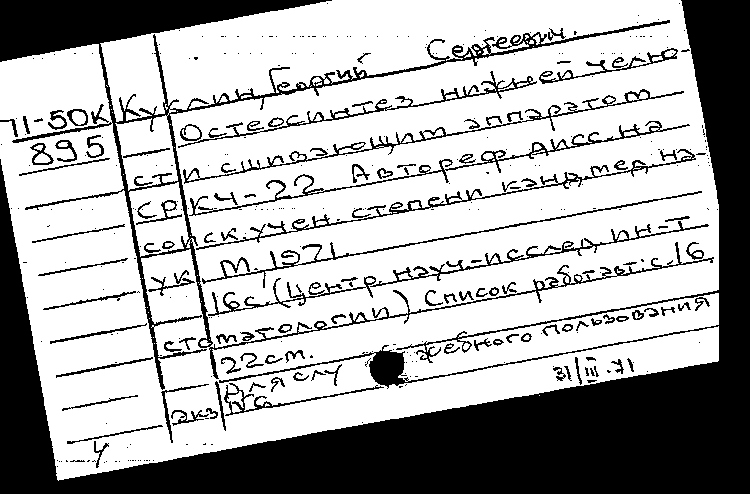 Куклин, Георгий Сергеевич.
71-50К
895
Остеосинтез нижней челю-
сти сшивающим аппаратом
СРКЧ-22 Автореф. дисс. на
соиск. учен. степени канд. мед. на-
ук. М. 1971.
16с. (Центр. науч.-исслед. ин-т
стоматологии). Список работ авт.: с. 16
22см.
Для служебного пользования
экз №
31/III-71